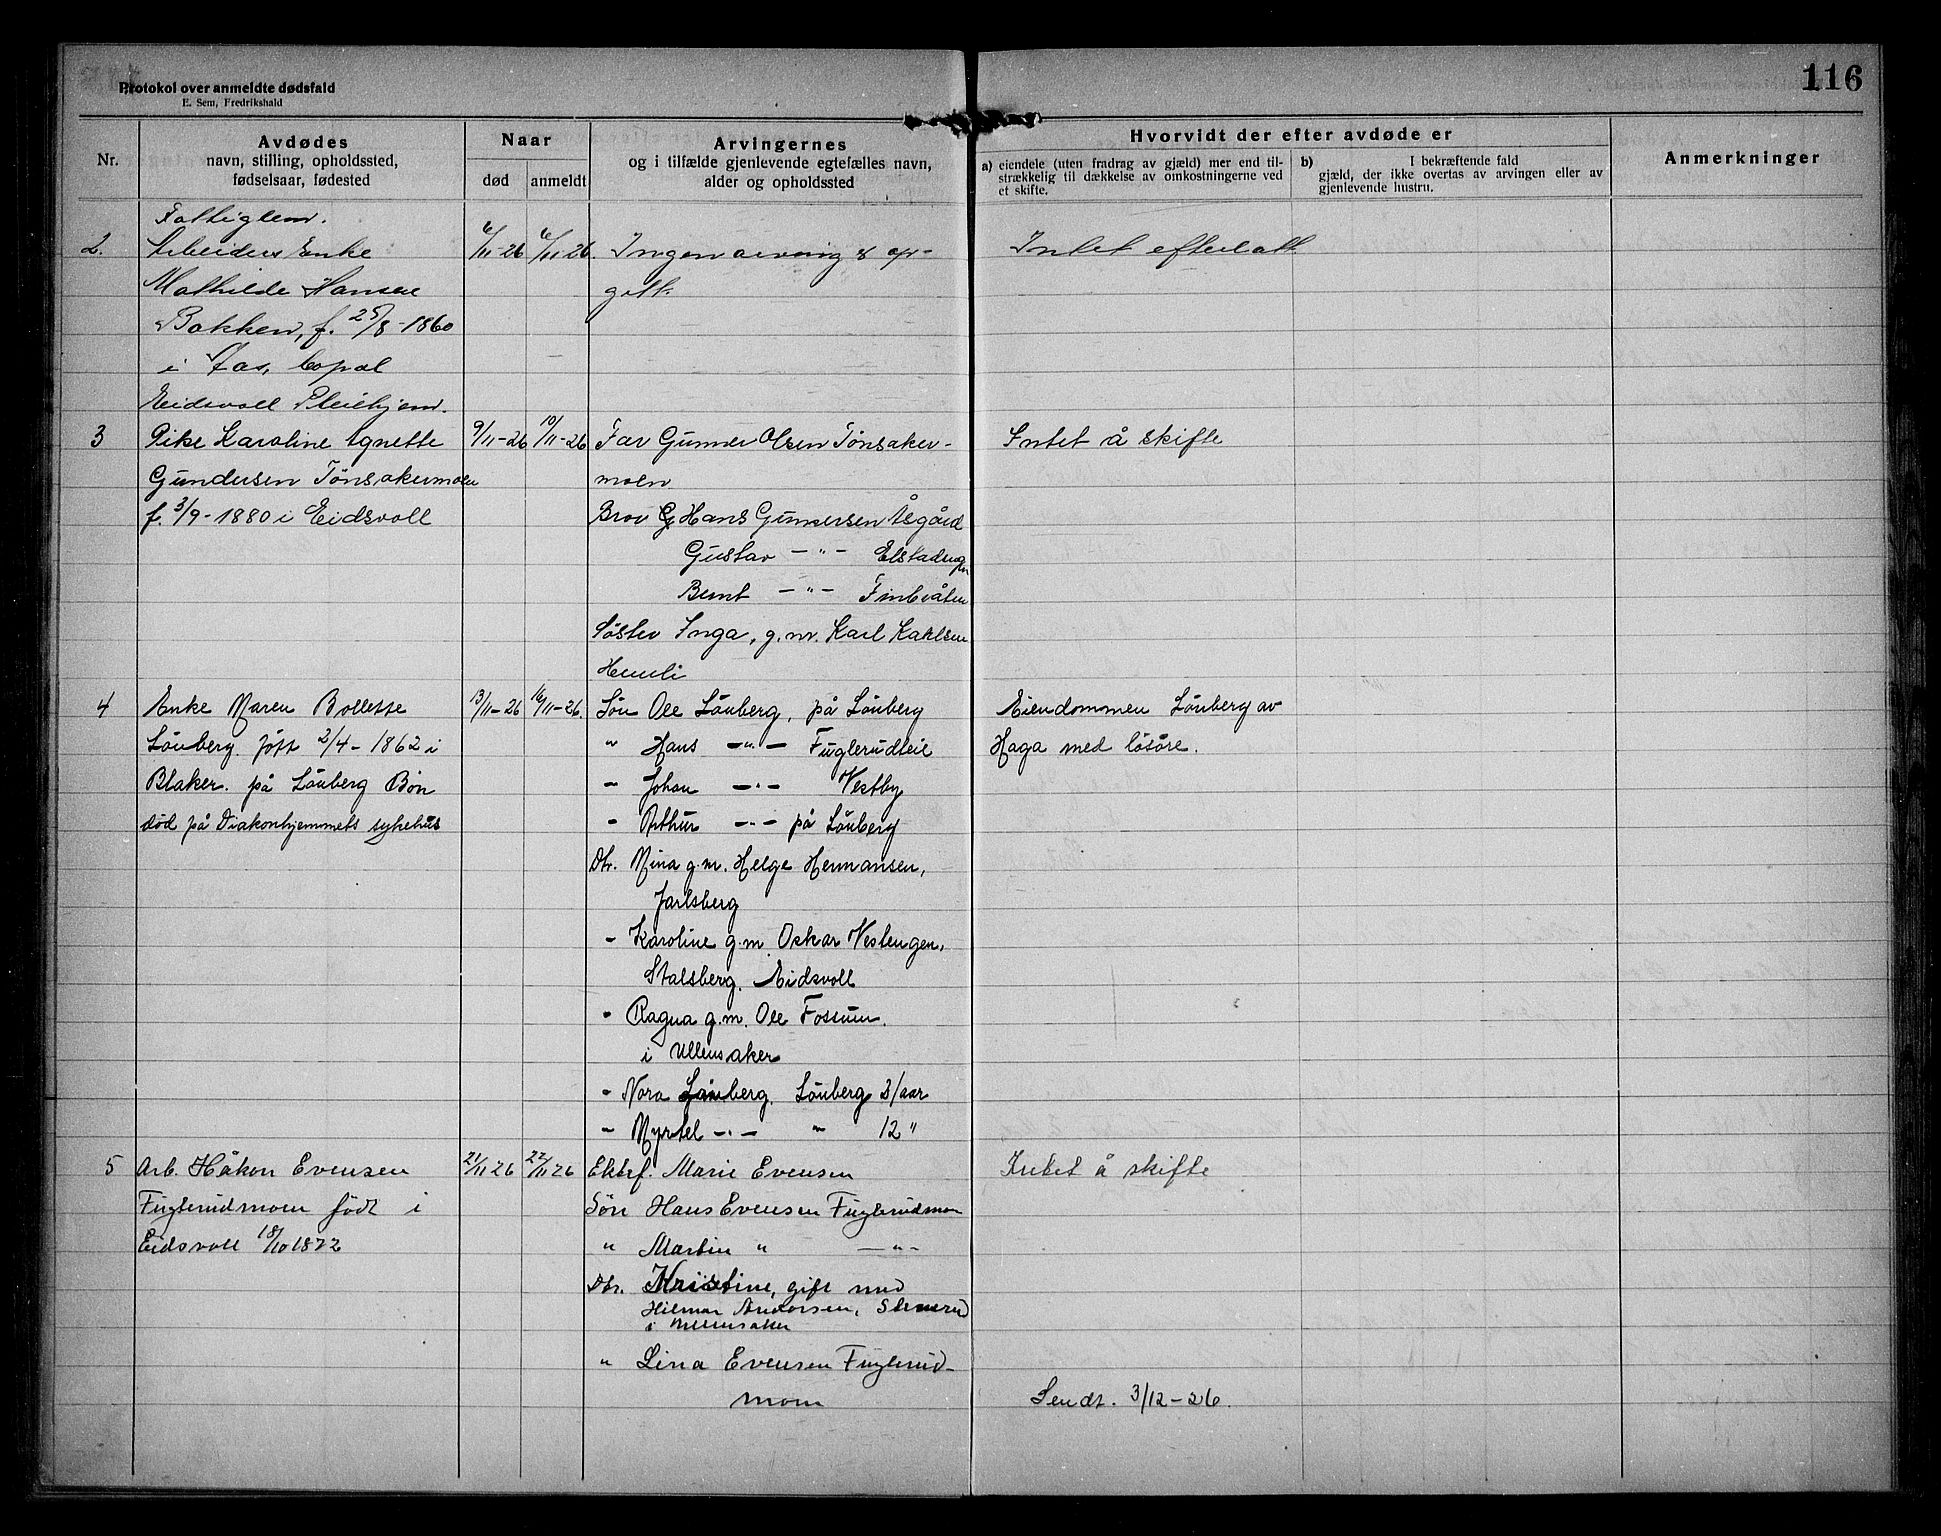 116
Protokol over anmeldte dødsfald
E. Sem, Fredrikshald
Nr.
Avdødes
navn, stilling, opholdssted,
fødselsaar, fødested
Naar
død
anmeldt
Arvingernes
og i tilfælde gjenlevende egtefælles navn,
alder og opholdssted
Hvorvidt der efter avdøde er
a) eiendele (uten fradrag av gjæld) mer end til-
strækkelig til dækkelse av omkostningerne ved
et skifte.
b) I bekræftende fald
gjæld, der ikke overtas av arvingen eller av
gjenlevende hustru.
Anmerkninger
2.
Fattiglem.
Arbeiders Enke
Mathilde Hansen
Bakken, f. 25/8-1860
i
Eidsvoll Pleiehjem.
6/11-26
6/11-26.
Ingen arving er op-
gitt.
Intet efterlatt
3
Pike Karoline Agnette
Gundersen Tönsakermoen
f. 3/9-1880 i Eidsvoll
9/11-26
10/11-26
Far Gunner Olsen Tönsaker-
moen
Bror Hans Gundersen Åsgård
Gustav -"-
Bernt -"- Finbråten
Söster Inga, g.m. Karl Karlsen
Hemli
Intet å skifte
4
Enke Maren Bollette
Lönberg. født 2/4-1862 i
Blaker. på Lönberg Bön
död på Diakonhjemmets sykehus
13/11-26
16/11-26.
Sön Ole Lönberg, på Lönberg
" Hans -"- Fuglerudteie
- Johan -"- Vestby
- Arthur -"- på Lönberg
Dtr. Mina g.m. Helge Hermansen,
Jarlsberg
- Karoline g.m. Oskar Vestengen,
Stalsberg. Eidsvoll
- Ragna g.m. Ole Fossum.
i Ullensaker
- Nora Lönberg. Lönberg 21 aar
- Myrtel -"- " 12 "
Eiendommen Lönberg av
Haga med lösöre.
5
Arb. Håkon Evensen
Fuglerudmoen født i
Eidsvoll 18/10 1872
21/11 26
22/11 26
Ektef. Marie Evensen
Sön Hans Evensen Fuglerudmoen
" Martin " -"-
Dtr. Kristine, gift med
Hilmar Andersen,
i Ullensaker
" Lina Evensen Fuglerud-
moen
Intet å skifte
Sendt. 3/12-26.